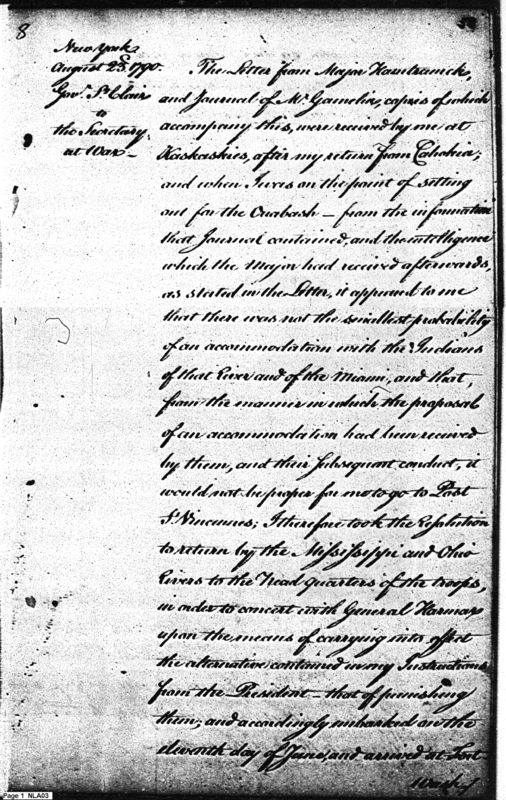 8
New York
August 23d. 1790.
Govr. St. Clair
to
the Secretary
at War -
The Letter from Major Hamtramck,
and Journal of Mr. Gamelin, copies of which
accompany this, were received by me at
Kaskaskies, after my return from Cahokia;
and when I was on the point of setting
out for the Ouabash - from the information
that Journal contained, and the intelligence
which the Major had received afterwards,
as stated in the Letter, it appeared to me
that there was not the smallest probability
of an accommodation with the Indians
of that River and of the Miami, and that,
from the manner in which the proposal
of an accommodation had been received
by them, and their subsequent conduct, it
would not be proper for me to go to Post
St. Vincennes; I therefore took the Resolution
to return by the Mississippi and Ohio
Rivers to the Head quarters of the troops,
in order to concert with General Harmar
upon the means of carrying into effect
the alternative contained in my Instructions
from the President - that of punishing
them; and accordingly embarked on the
eleventh day of June, and arrived at Fort
Page 1 NLA03